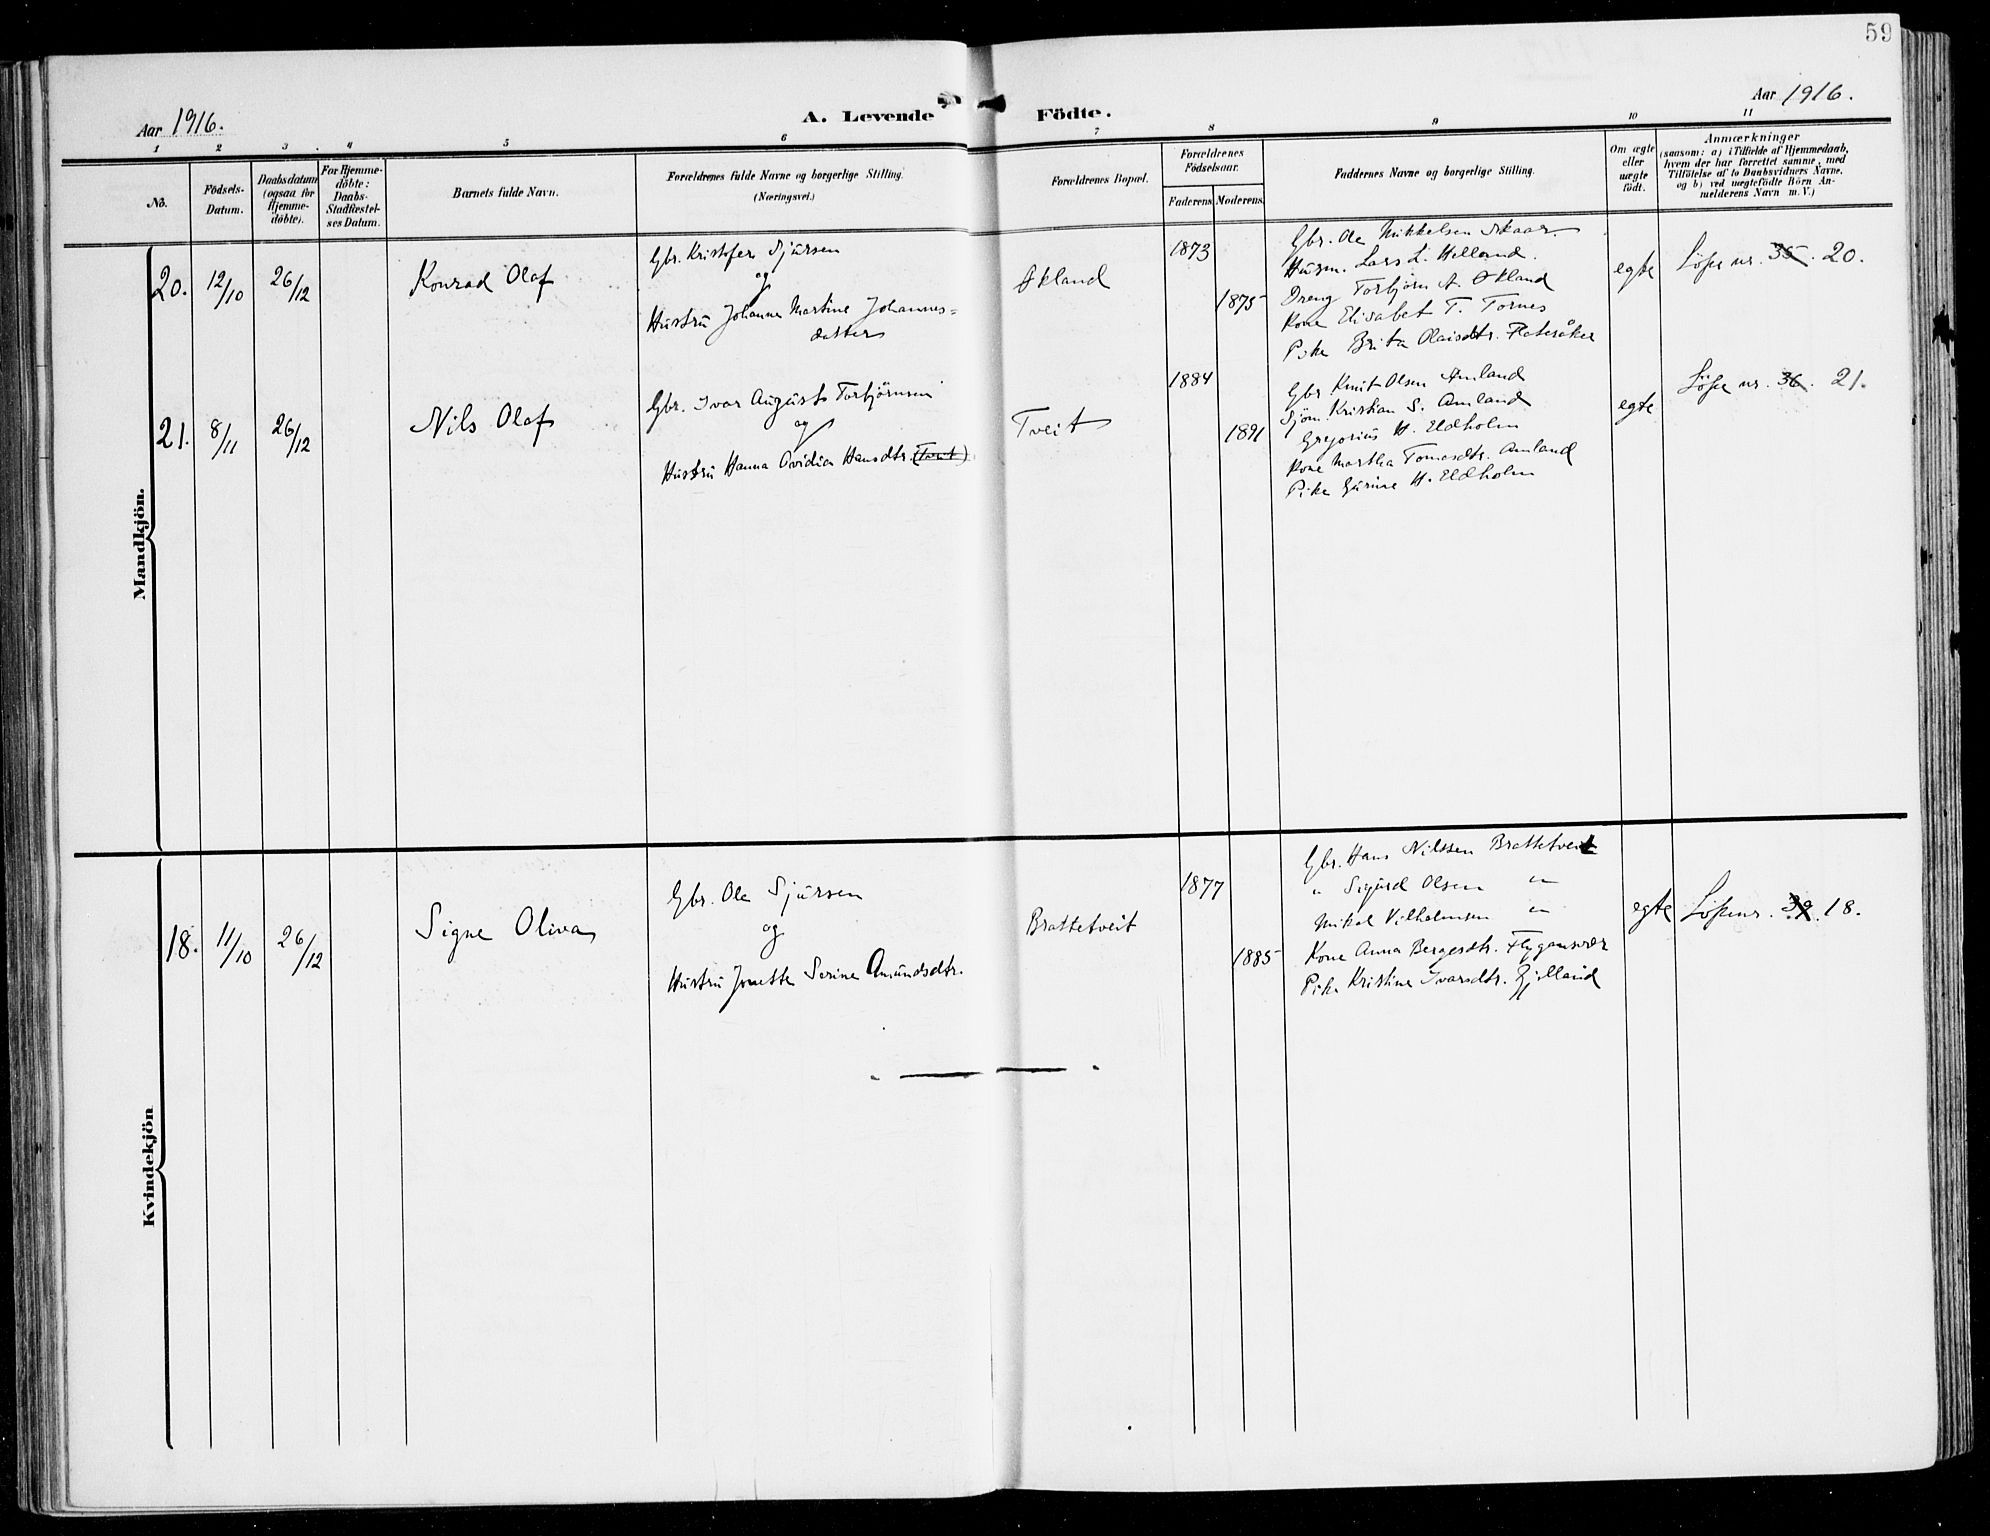 59
Aar 1916.
A. Levende Födte.
Aar 1916.
1 2 3 4 5 6 7 8 9 10 11
No.
Födsels-Datum.
Daabsdatum (ogsaa for Hjemme-döbte).
For Hjemme-döbte: Daabs-Stadfæstel-ses Datum.
Barnets fulde Navn.
Forældrenes fulde Navne og borgerlige Stilling.
(Næringsvei.)
Forældrenes Bopæl.
Forældrenes Födselsaar.
Faderens Moderens
Faddernes Navne og borgerlige Stilling.
Om ægte eller uægte födt.
Anmærkninger
(saasom: a) i Tilfælde af Hjemmedaab,
hvem der har forrettet samme, med
Tilföielse af to Daabsvidners Navne,
og b) ved uægtefödte Börn An-
melderens Navn m. V.)
Mandkjön.
20. 12/10 26/12 Konrad Olaf
Gbr. Kristofer Sjursen
og
Hustru Johanne Martine Johannes=
datter
Økland
1873
1875
Gbr. Ole Mikkelsen Skaar
Husm. Lars L. Helland.
Dreng Torbjörn A. Økland
Kone Elisabet T. Tornes
Pike Brita Olaisdtr. Flatråker
egte
Löpe nr. 35. 20.
21. 8/11 26/12 Nils Olaf
Gbr. Ivar August Torbjörnsen
og
Hustru Hanna Ovidia Hansdtr. (Tveit)
Tveit
1884
1891
Gbr Knut Olsen Amland
Sjöm. Kristian S. Amland
Gregorius H. Eldholm
Kone Martha Tomasdtr. Amland
Pike Gurine H. Eldholm
egte
Löpe nr. 36. 21.
Kvindekjön
18. 11/10 26/12 Signe Oliva
Gbr. Ole Sjursen
og
Hustru Jonette Serine Amundsdtr.
Brattetveit
1877
1885
Gbr. Hans Nilssen Brattetveit
" Sigurd Olsen "
Mikal Vilhelmsen "
Kone Anna Bergesdtr. Flygansvær
Pike Kristine Ivarsdtr. Gjelland
egte
Löpenr. 18.